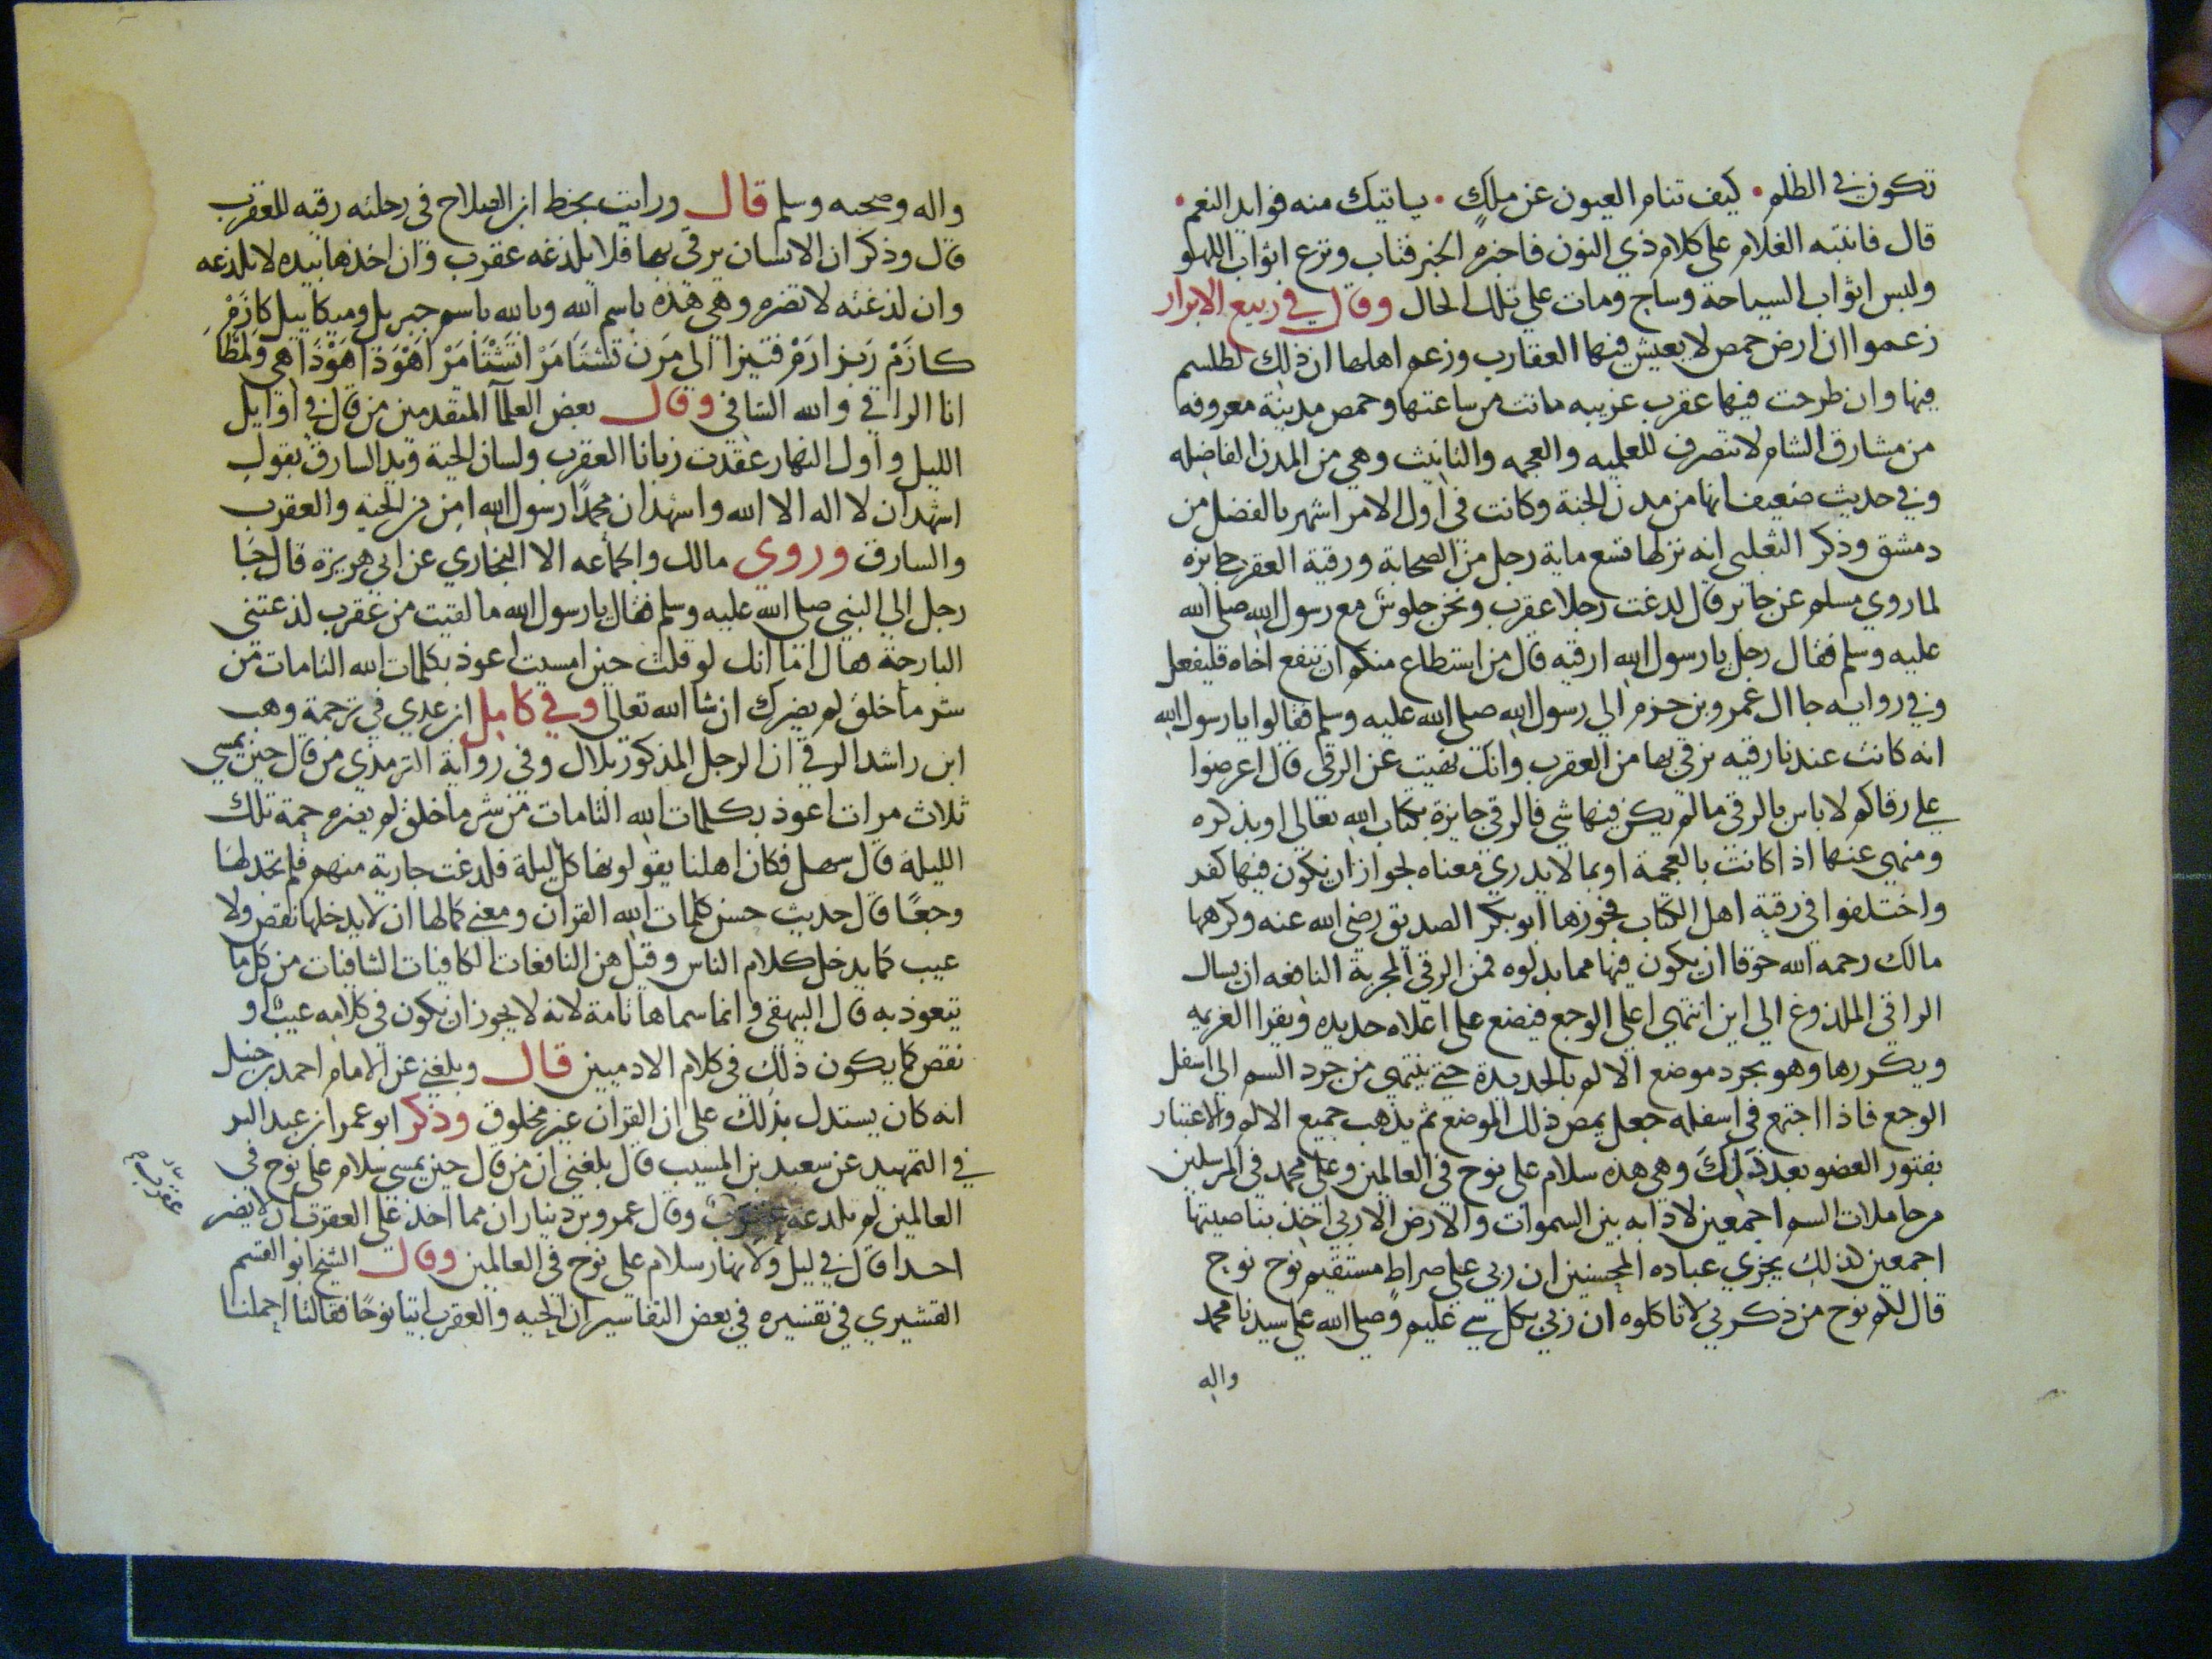 تكون في الظلم • كيف تنام العيون عن ملك • ياتيك منه فوايد النعم •
قال فانتبه الغلام على كلام ذي النون فاخبره الخبر فتاب ونزع اثواب اللهو
ولبس اثواب السياحة وساح ومات على تلك الحال وقال في ربيع الابرار
زعموا ان ارض حمص لا يعيش فيها العقارب وزعم اهلها ان ذلك لطلسم
فيها وان طرحت فيها عقرب غريبه ماتت من ساعتها وحمص مدينة معروفه
من مشارق الشام لا تتصرف للعلميه والعجمه والتانيث وهي من المدن الفاضله
وفي حديث ضعيف انها من مدن الجنة وكانت في اول الامر اشهر بالفضل من
دمشق وذكر الثعلبي انه نزلها تسع ماية رجل من الصحابة ورقية العقرب جايزه
لما روي مسلم عن جابر قال لدغت رجلا عقرب ونحن جلوس مع رسول الله صلى الله
عليه وسلم فقال رجل يا رسول الله ارقيه قال من استطاع منكم ان ينفع اخاه فليفعل
وفي روايه جا ال عمرو بن حزم الي رسول الله صلى الله عليه وسلم فقالوا يا رسول الله
انه كانت عندنا رقيه نرقي بها من العقرب وانك نهيت عن الرقى قال اعرضوا
علي رقاكم لا باس بالرقى ما لم يكن فيها شي فالرقي جايزة بكتاب الله تعالى او بذكره
ومنهي عنها اذا كانت بالعجمية او بما لا يدري معناه لجواز ان يكون فيها كفر
واختلفوا في رقية اهل الكتاب فجوزها ابو بكر الصديق رضي الله عنه وكرهها
مالك رحمه الله خوفا ان يكون فيها مما بدلوه فمن الرقي المجربة النافعه ان يسال
الراقي الملذوغ الي اين انتهي اعلي الوجع فيضع على اعلاه حديده ويقرا العزيمه
ويكررها وهو يجرد موضع الالم بالحديدة حتي ينتهي من جرد السم الى اسفل
الوجع فاذا اجتمع في اسفله جعل يمص ذلك الموضع ثم يذهب جميع الالم ولا اعتبار
بفتور العضو بعد ذلك وهي هذه سلام على نوح في العالمين وعلى محمد في المرسلين
من حاملات السم اجمعين لا دابه بين السموات والارض الا ربي اخذ بناصيتها
اجمعين كذلك يجزي عباده المحسنين ان ربي على صراط مستقيم نوح نوح
قال لكم نوح من ذكرني لا تاكلوه ان ربي بكل شي عليم وصلى الله على سيدنا محمد
واله
واله وصحبه وسلم قال ورايت بخط ابن الصلاح في رحلته رقيه للعقرب
قال وذكر ان الانسان يرقي بها فلا يلدغه عقرب وان اخذها بيده لا تلدغه
وان لدغته لا تضره وهي هذه باسم الله وبالله باسم جبريل وميكاييل كازم
كازم ريزازم فتيزا الى مرن تشتامر انتشتامر اهوذا هوذا هي ولمظا
انا الراقي والله الشافي وقال بعض العلما المتقدمين من قال في اوايل
الليل واول النهار عقدت زبانا العقرب ولسان الحية ويد السارق بقول
اشهد ان لا اله الا الله واشهد ان محمدا رسول الله امن من الحية والعقرب
والسارق وروي مالك والجماعه الا البخاري عن ابي هريرة قال جا
رجل الي النبي صلى الله عليه وسلم فقال يا رسول الله ما لقيت من عقرب لذغتني
البارحة فقال اما انك لو قلت حين امسيت اعوذ بكلمات الله التامات من
شر ما خلق لم يضرك ان شا الله تعالى وفي كامل ابن عدي في ترجمة وهب
ابن راشد الرقي ان الرجل المذكور بلال وفي رواية الترمذي من قال حين يمسي
ثلاث مرات اعوذ بكلمات الله التامات من شر ما خلق لم يضره حمة تلك
الليلة قال سهيل فكان اهلنا يقولونها كل ليلة فلدغت جارية منهم فلم تجد لها
وجعًا قال حديث حسن كلمات الله القران ومعني كمالها ان لا يدخلها نقص ولا
عيب كما يدخل كلام الناس وقيل هن النافعات الكافيات الشافيات من كل ما
يتعوذ به قال البيهقي وانما سماها تامة لانه لا يجوز ان يكون في كلامه عيب او
نقص كما يكون ذلك في كلام الادميين قال وبلغني عن الامام احمد بن حنبل
انه كان يستدل بذلك على ان القران غير مخلوق وذكر ابو عمر ابن عبد البر
في التمهيد عن سعيد بن المسيب قال بلغني ان من قال حين يمسي سلام على نوح في
العالمين لم تلدغه عقرب وقال عمرو بن دينار ان مما اخذ على العقرب ان لا يضر
احدا قال في ليل ولا نهار سلام على نوح في العالمين وقال الشيخ ابو القسم
القشيري في تفسيره في بعض التفاسير ان الحيه والعقرب اتيا نوحًا فقالتا احملنا
عقرب